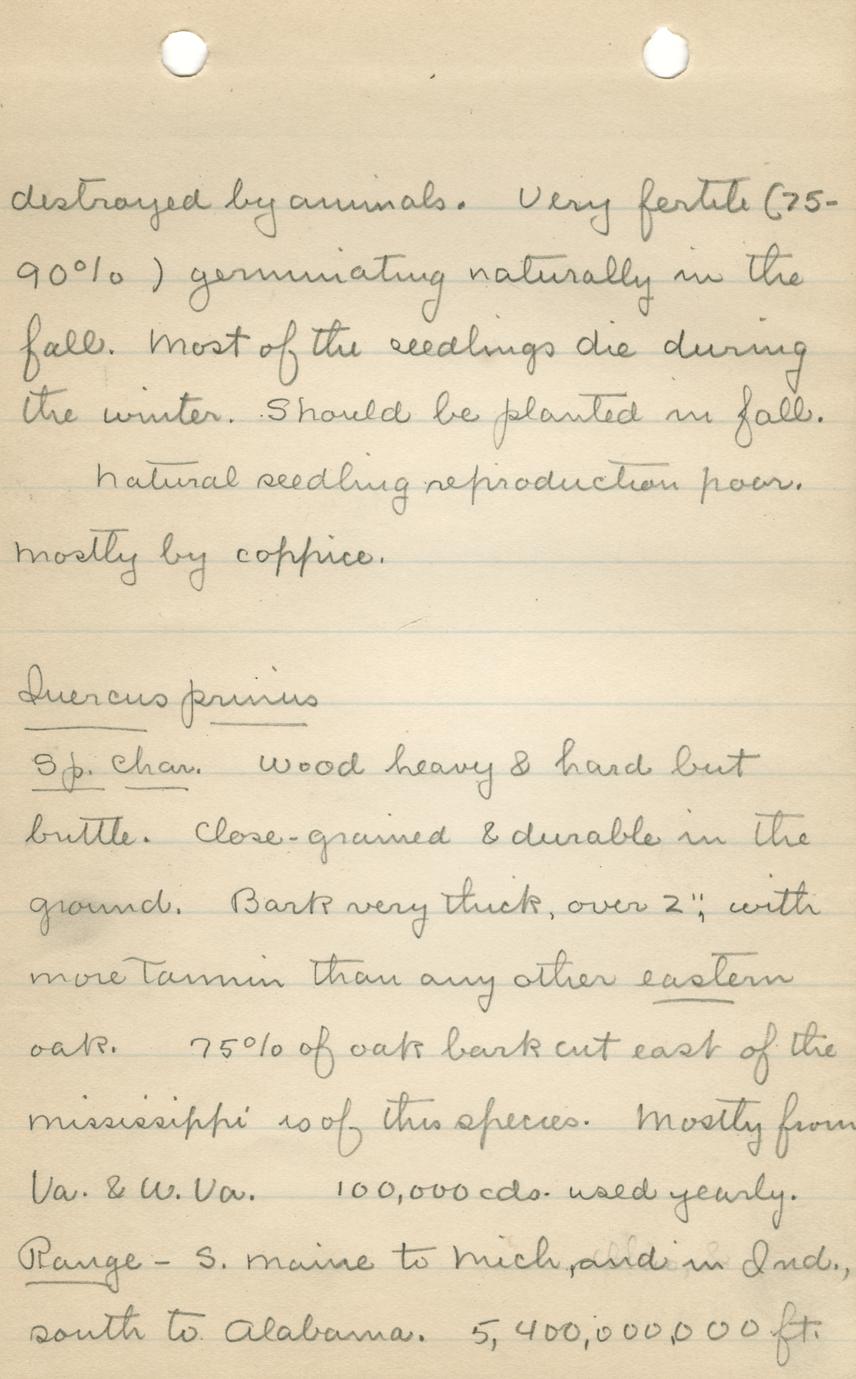 destroyed by animals. Very fertile (75-
90%) germinating naturally in the
fall. Most of the seedlings die during
the winter. Should be planted in fall.
Natural seedling reproduction poor.
Mostly by coppice.
Quercus prinus
Sp. Char. Wood heavy & hard but
brittle. Close-grained & durable in the
ground. Bark very thick, over 2", with
more Tannin than any other eastern
oak. 75% of oak bark cut east of the
Mississippi is of this species. Mostly from
Va. & W. Va. 100,000 cds. used yearly.
Range - S. Maine to Mich, and in Ind.,
south to Alabama. 5,400,000,000 ft.